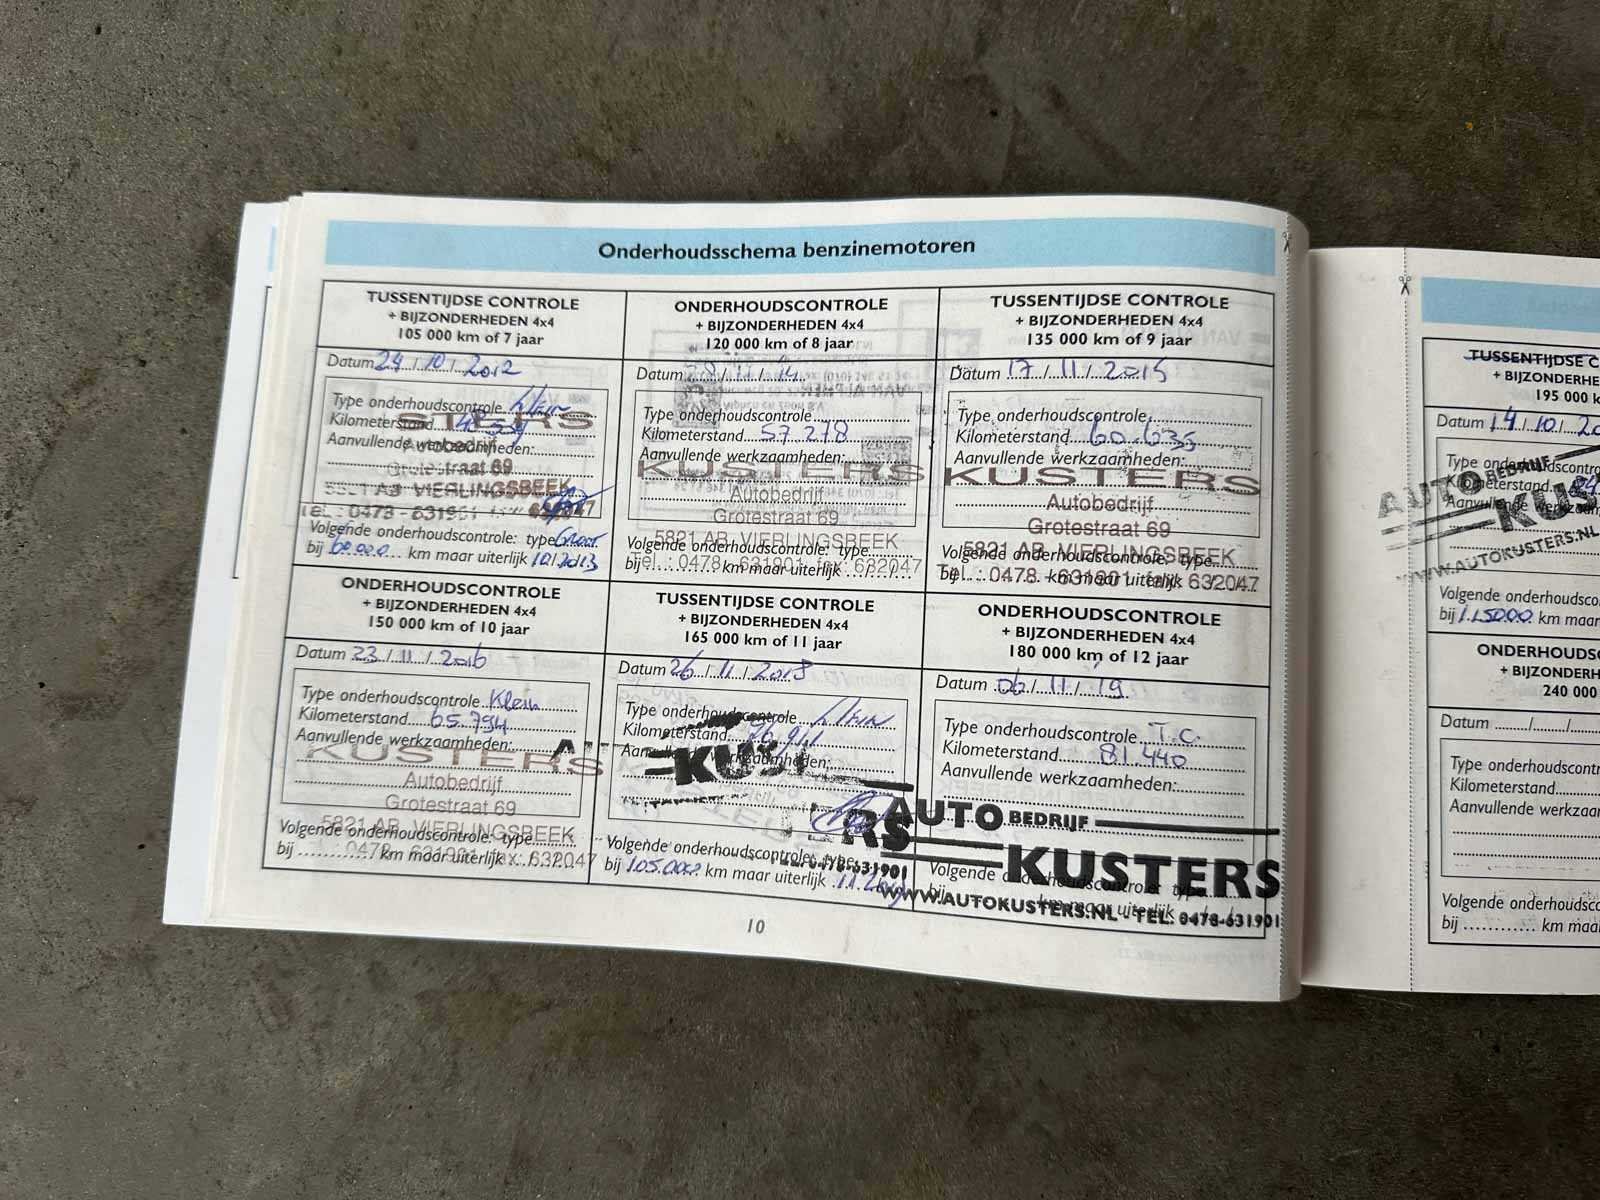 Onderhoudsschema benzinemotoren
TUSSENTIJDSE CONTROLE
+ BIJZONDERHEDEN 4x4
105 000 km of 7 jaar
Datum 24/10/2012
Type onderhoudscontrole Klein
Kilometerstand
Aanvullende werkzaamheden:
STERS
Autobedrijf
Grotestraat 69
5821 AB VIERLINGSBEEK
Tel.: 0478 - 631901 632047
Volgende onderhoudscontrole: type Groot
bij 60.000 km maar uiterlijk 10/2013
ONDERHOUDSCONTROLE
+ BIJZONDERHEDEN 4x4
120 000 km of 8 jaar
Datum 11/14
Type onderhoudscontrole
Kilometerstand 57 278
Aanvullende werkzaamheden:
KUSTERS
Autobedrijf
Grotestraat 69
5821 AB VIERLINGSBEEK
Tel.: 0478 - 631901 fax: 632047
Volgende onderhoudscontrole: type
bij km maar uiterlijk
TUSSENTIJDSE CONTROLE
+ BIJZONDERHEDEN 4x4
135 000 km of 9 jaar
Datum 17/11/2015
Type onderhoudscontrole
Kilometerstand 60.635
Aanvullende werkzaamheden:
KUSTERS
Autobedrijf
Grotestraat 69
5821 AB VIERLINGSBEEK
Tel.: 0478 - 631901 fax: 632047
Volgende onderhoudscontrole: type
bij km maar uiterlijk
ONDERHOUDSCONTROLE
+ BIJZONDERHEDEN 4x4
150 000 km of 10 jaar
Datum 23/11/2016
Type onderhoudscontrole Klein
Kilometerstand 65.794
Aanvullende werkzaamheden:
KUSTERS
Autobedrijf
Grotestraat 69
5821 AB VIERLINGSBEEK
0478 - 631901 fax: 632047
Volgende onderhoudscontrole: type
bij km maar uiterlijk
TUSSENTIJDSE CONTROLE
+ BIJZONDERHEDEN 4x4
165 000 km of 11 jaar
Datum 26/11/2018
Type onderhoudscontrole Klein
Kilometerstand 76.911
Aanvullende werkzaamheden:
AU
KUS
RS
0478-631901
Volgende onderhoudscontrole: type
bij 105.000 km maar uiterlijk
ONDERHOUDSCONTROLE
+ BIJZONDERHEDEN 4x4
180 000 km of 12 jaar
Datum 06/11/19
Type onderhoudscontrole T.C.
Kilometerstand 81.440
Aanvullende werkzaamheden:
AUTO BEDRIJF
KUSTERS
WWW.AUTOKUSTERS.NL TEL: 0478-631901
Volgende onderhoudscontrole: type
bij km maar uiterlijk
10
TUSSENTIJDSE C
+ BIJZONDERHE
195 000 k
Datum 14/10/20
Type onderhoudscontrol
Kilometerstand
Aanvullende werkzaam
AUTO BEDRIJF
KUS
WWW.AUTOKUSTERS.NL
Volgende onderhoudsco
bij 115000 km maar
ONDERHOUDSC
+ BIJZONDERHE
240 000
Datum
Type onderhoudscontr
Kilometerstand
Aanvullende werkzaam
Volgende onderhoudsc
bij km maar